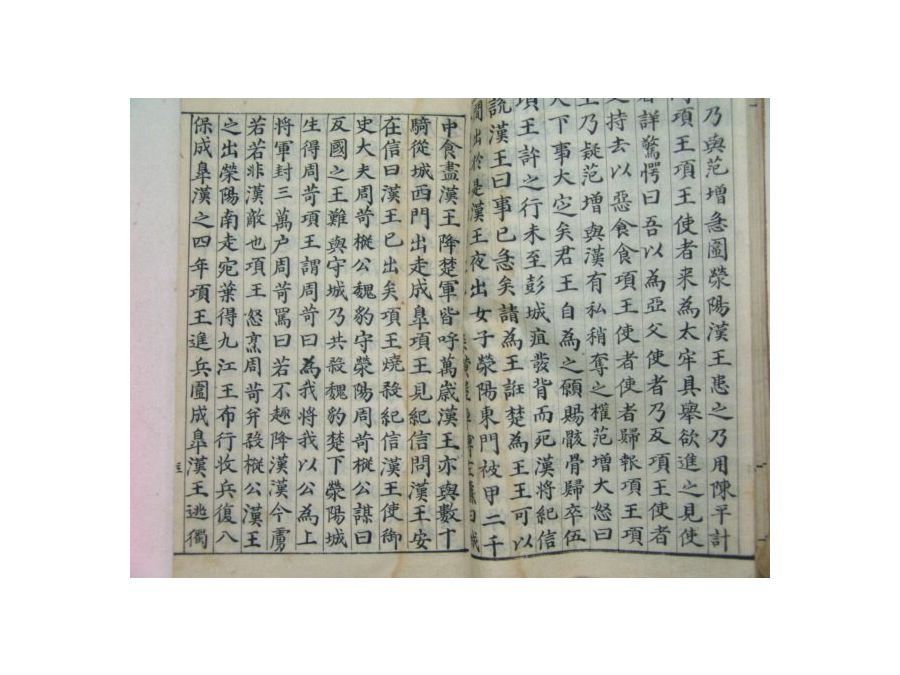 乃與范增急圍滎陽漢王患之乃用陳平計
項王項王使者来為太牢具舉欲進之見使
者詳驚愕曰吾以為亞父使者乃反項王使者
持去以惡食食項王使者使者歸報項王項
王乃疑范增與漢有私稍奪之權范增大怒曰
天下事大定矣君王自為之願賜骸骨歸卒伍
項王許之行未至彭城疽發背而死漢將紀信
說漢王曰事已急矣請為王誑楚為王王可以
間出於是漢王夜出女子滎陽東門被甲二千
曰城
中食盡漢王降楚軍皆呼萬歲漢王亦與數十
騎從城西門出走成皐項王見紀信問漢王安
在信曰漢王已出矣項王燒殺紀信漢王使御
史大夫周苛樅公魏豹守滎陽周苛樅公謀曰
反國之王難與守城乃共殺魏豹楚下滎陽城
生得周苛項王謂周苛曰為我將我以公為上
將軍封三萬户周苛罵曰若不趣降漢漢今虜
若若非漢敵也項王怒烹周苛幷殺樅公漢王
之出滎陽南走宛葉得九江王布行收兵復入
保成皐漢之四年項王進兵圍成皐漢王逃獨